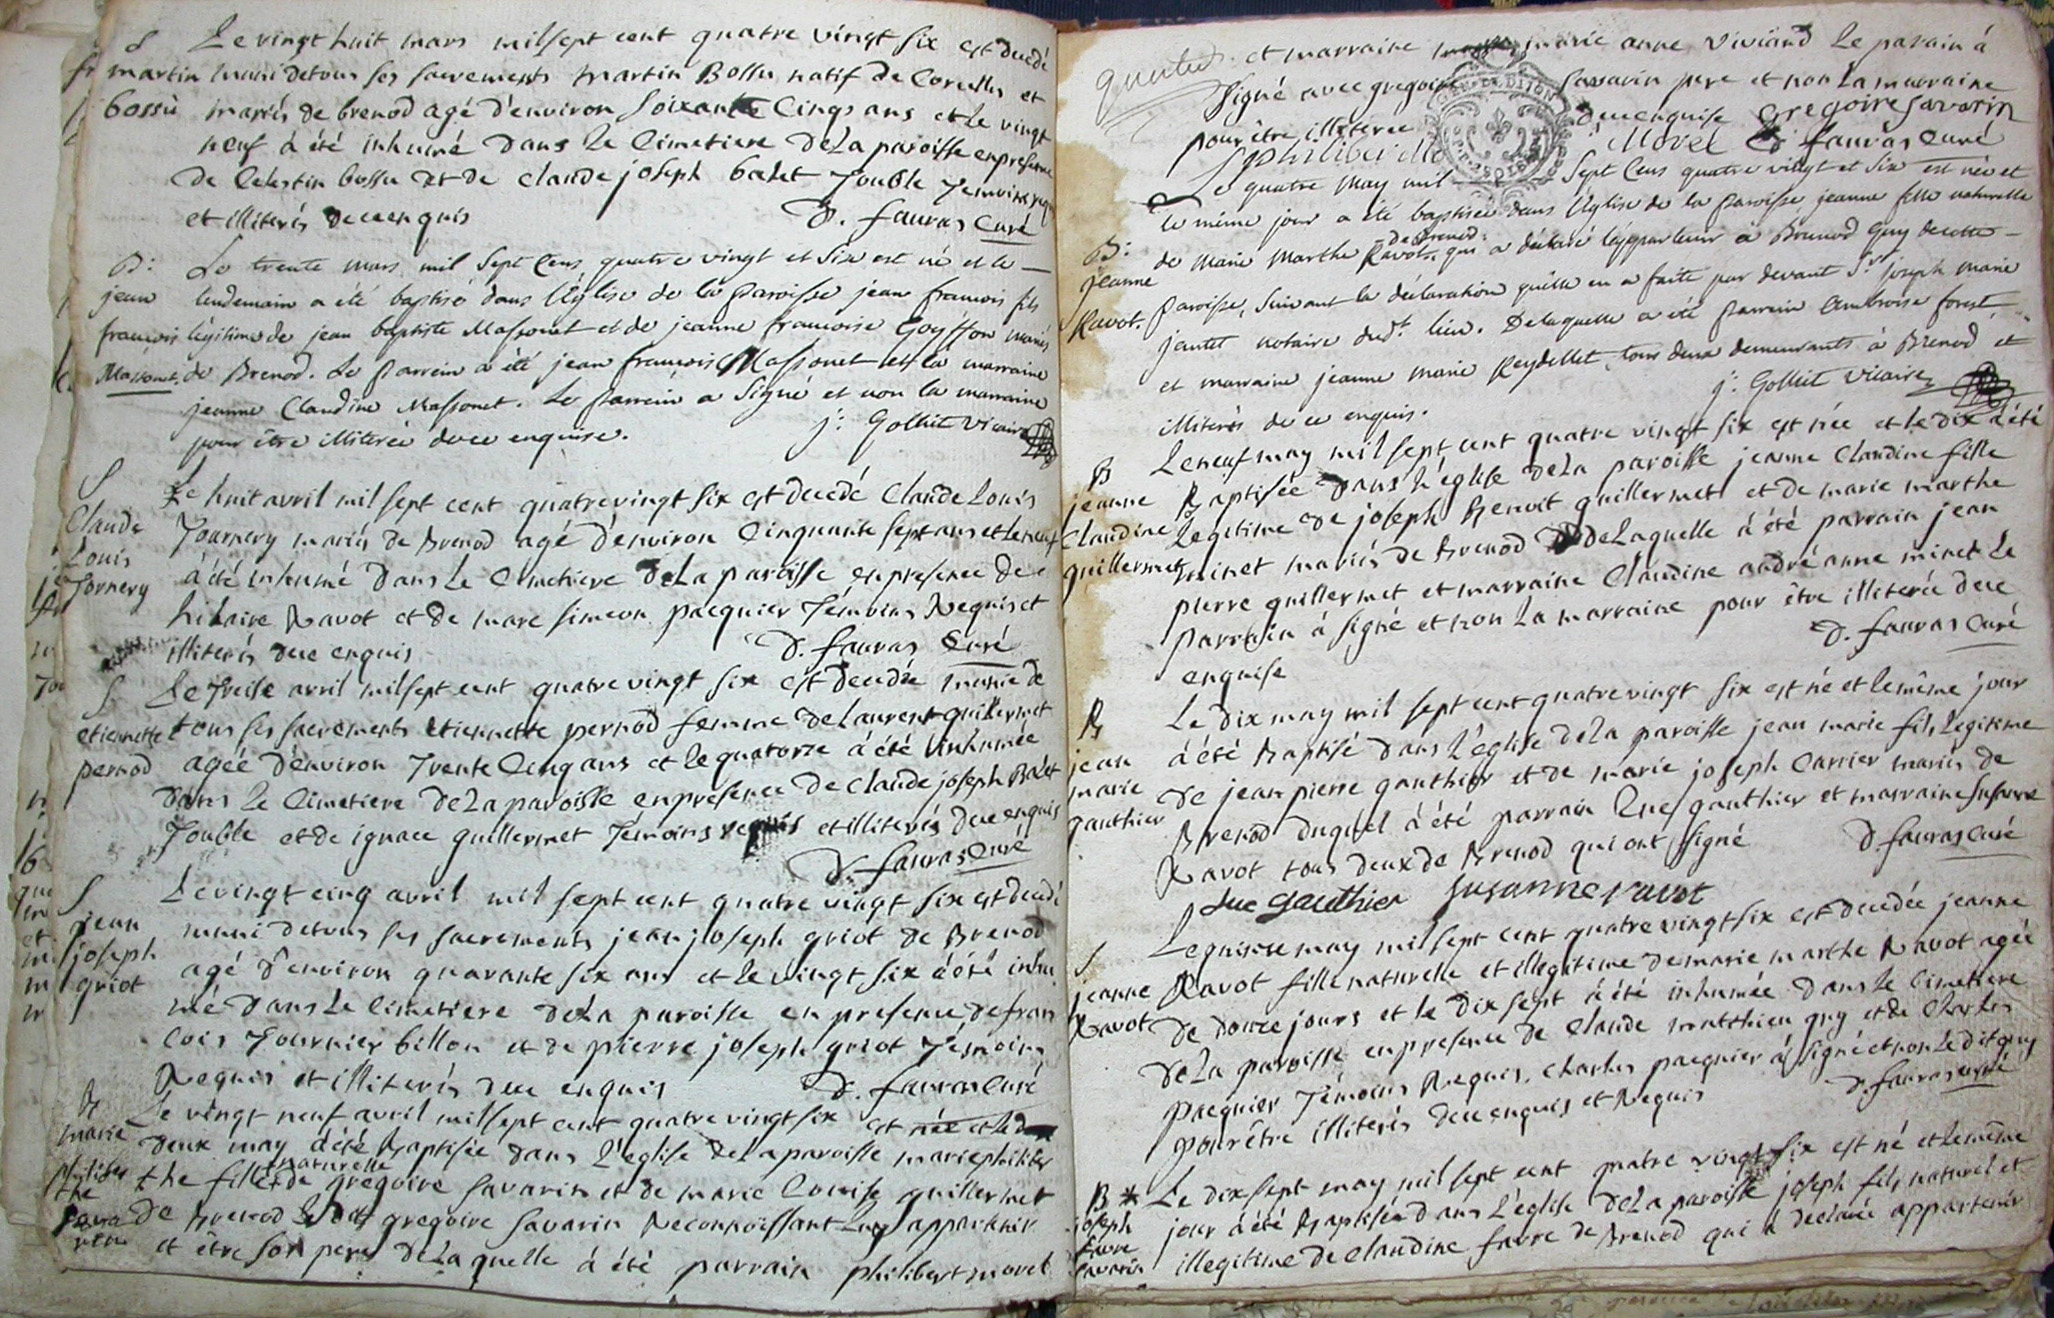 S
martin
bossu
Le vingt huit mars mil sept cent quatre vingt six est decedé
muni de tous ses sacrements martin Bossu natif de Corcelles et
mariés de brenod agé d'environ soixante Cinqs ans et le vingt
neuf à été inhumé dans le Cimetiere de La paroisse en presence
de Celestin bossu et de claude joseph balet Touble Temoins
et illiterés de ce enquis D. fauras Curé
B:
jean
francois
Massonet.
Le trente mars mil sept Cens quatre vingt et six est né et le
lendemain a été baptisé dans l'Église de la Paroisse jean francois fils
légitime de jean baptiste Massonet et de jeanne francoise Goyffon mariés
de Brenod. Le Parrein a été jean francois Massonet et la marraine
jeanne Claudine Massonet. Le Parrein a signé et non la marraine
pour être illiterée de ce enquise. j: Golliet vicaire
S
Claude
Louis
Tornery
Le huit avril mil sept cent quatre vingt six est decedé Claude Louis
Tournery mariés de Brenod agé d'environ Cinquante sept ans et le neuf
à été inhumé dans Le Cimetiere de La paroisse en presence de
hilaire Ravot et de marc simeon pacquier Témoins Requis et
illiterés de ce enquis D. fauras Curé
S
etiennette
pernod
Le Treise avril mil sept cent quatre vingt six est decedée munie de
tous ses sacrements etiennette pernod femme de Laurent guillermet
agée d'environ Trente Cinq ans et le quatorze à été inhumée
dans Le Cimetiere de La paroisse en presence de claude joseph Balet
Touble et de ignace guillermet Témoins requis et illiterés de ce enquis
D. fauras curé
S
jean
joseph
griot
Le vingt cinq avril mil sept cent quatre vingt six est decedé
muni de tous ses sacrements jean joseph griot de Brenod
agé d'environ quarante six ans et le vingt six à été inhu
mé dans Le Cimetiere de La paroisse en presence de fran
cois Tournier billon et de pierre joseph griot Témoins
Requis et illiterés de ce enquis D. fauras Curé
B
marie
philiber
the
sava
rin
Le vingt neuf avril mil sept cent quatre vingt six est née et le
deux may à été Baptisée dans L'église de La paroisse marie philiber
the fille naturelle de gregoire savarin et de marie Louise guillermet
de Brenod Le dit gregoire savarin Reconnoissant Luy appartenir
et être son pere de La quelle à été parrain philibert morel
et marraine marie anne Viviand Le parain à
signé avec gregoire savarin pere et non La marraine
pour être illiterée de ce enquise Gregoire Savarin
philibert Morel D fauras curé
B:
jeanne
Ravot.
Le quatre May mil sept Cens quatre vingt et six est née et
le même jour a été baptisée dans l'Église de la Paroisse jeanne fille naturelle
de Marie Marthe Ravot, de Brenod, qui a déclaré l'appartenir à Brenod Guy de cette
Paroisse, suivant la déclaration quelle en a faite par devant Sr. joseph marie
jantet notaire dud.t lieu. De laquelle a été Parrein Ambroise forest
et marraine jeanne Marie Reydellet, tous deux demeurants à Brenod et
illiterés de ce enquis. j: Golliet vicaire
B
jeanne
Claudine
guillermet
Le neuf may mil sept cent quatre vingt six est née et le dix à été
Baptisée dans L'église de La paroisse jeanne Claudine fille
Legitime de joseph Benoit guillermet et de marie marthe
minet mariés de Brenod de Laquelle à été parrain jean
pierre guillermet et marraine Claudine andréanne minet Le
Parrain à signé et non La marraine pour être illiterée de ce
enquise D. fauras curé
B
jean
marie
gauthier
Le dix may mil sept cent quatre vingt six est né et le même jour
à été Baptisé dans L'église de La paroisse jean marie fils Legitime
de jean pierre gauthier et de marie joseph Carrier mariés de
Brenod duquel à été parrain Luc gauthier et marraine susanne
Ravot tous deux de Brenod qui ont signé D fauras curé
Luc Gauthier Susanne ravot
S
jeanne
Ravot
Le quinze may mil sept cent quatre vingt six est decedée jeanne
Ravot fille naturelle et illegitime de marie marthe Ravot agée
de douze jours et le dix sept à été inhumée dans le Cimetiere
de La paroisse en presence de Claude matthieu guy et de Charles
pacquier Témoins Requis. Charles pacquier à signé et non Le dit guy
pour être illiterés de ce enquis et Requis D. fauras curé
B *
joseph
favre
savarin
Le dix sept may mil sept cent quatre vingt six est né et le même
jour à été Baptisé dans L'église de La paroisse joseph fils naturel et
illegitime de Claudine favre de Brenod qui à declaré appartenir